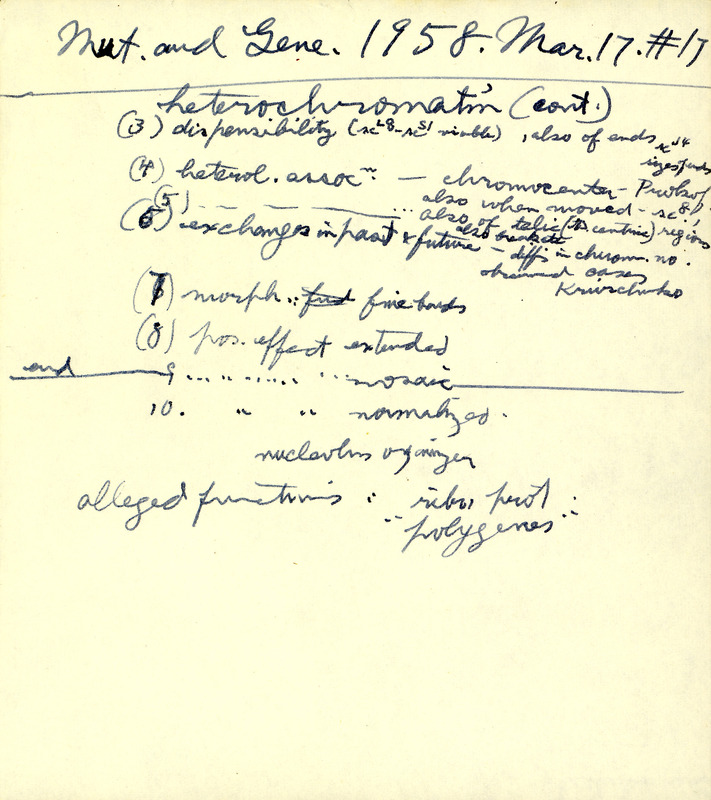 Mut. and Gene. 1958. Mar. 17. #17
heterochromatin (cont.)
(3) dispensibility (sc L8 - sc S1 viable), also of ends, sc J4
(4) heterol. assoc n. — chromocenter - Prokof.
also when moved - sc 8
(5) ... also of telic (to centric) regions
(6) exchanges in past & future - diffs in chrom. no.
observed cases
(7) morph.: fine bands
(8) pos. effect extended
end
9 .. .. .. .. mosaic
10. " " normalized.
nucleolus organizer
alleged functions : ribo, prot :
" polygenes "